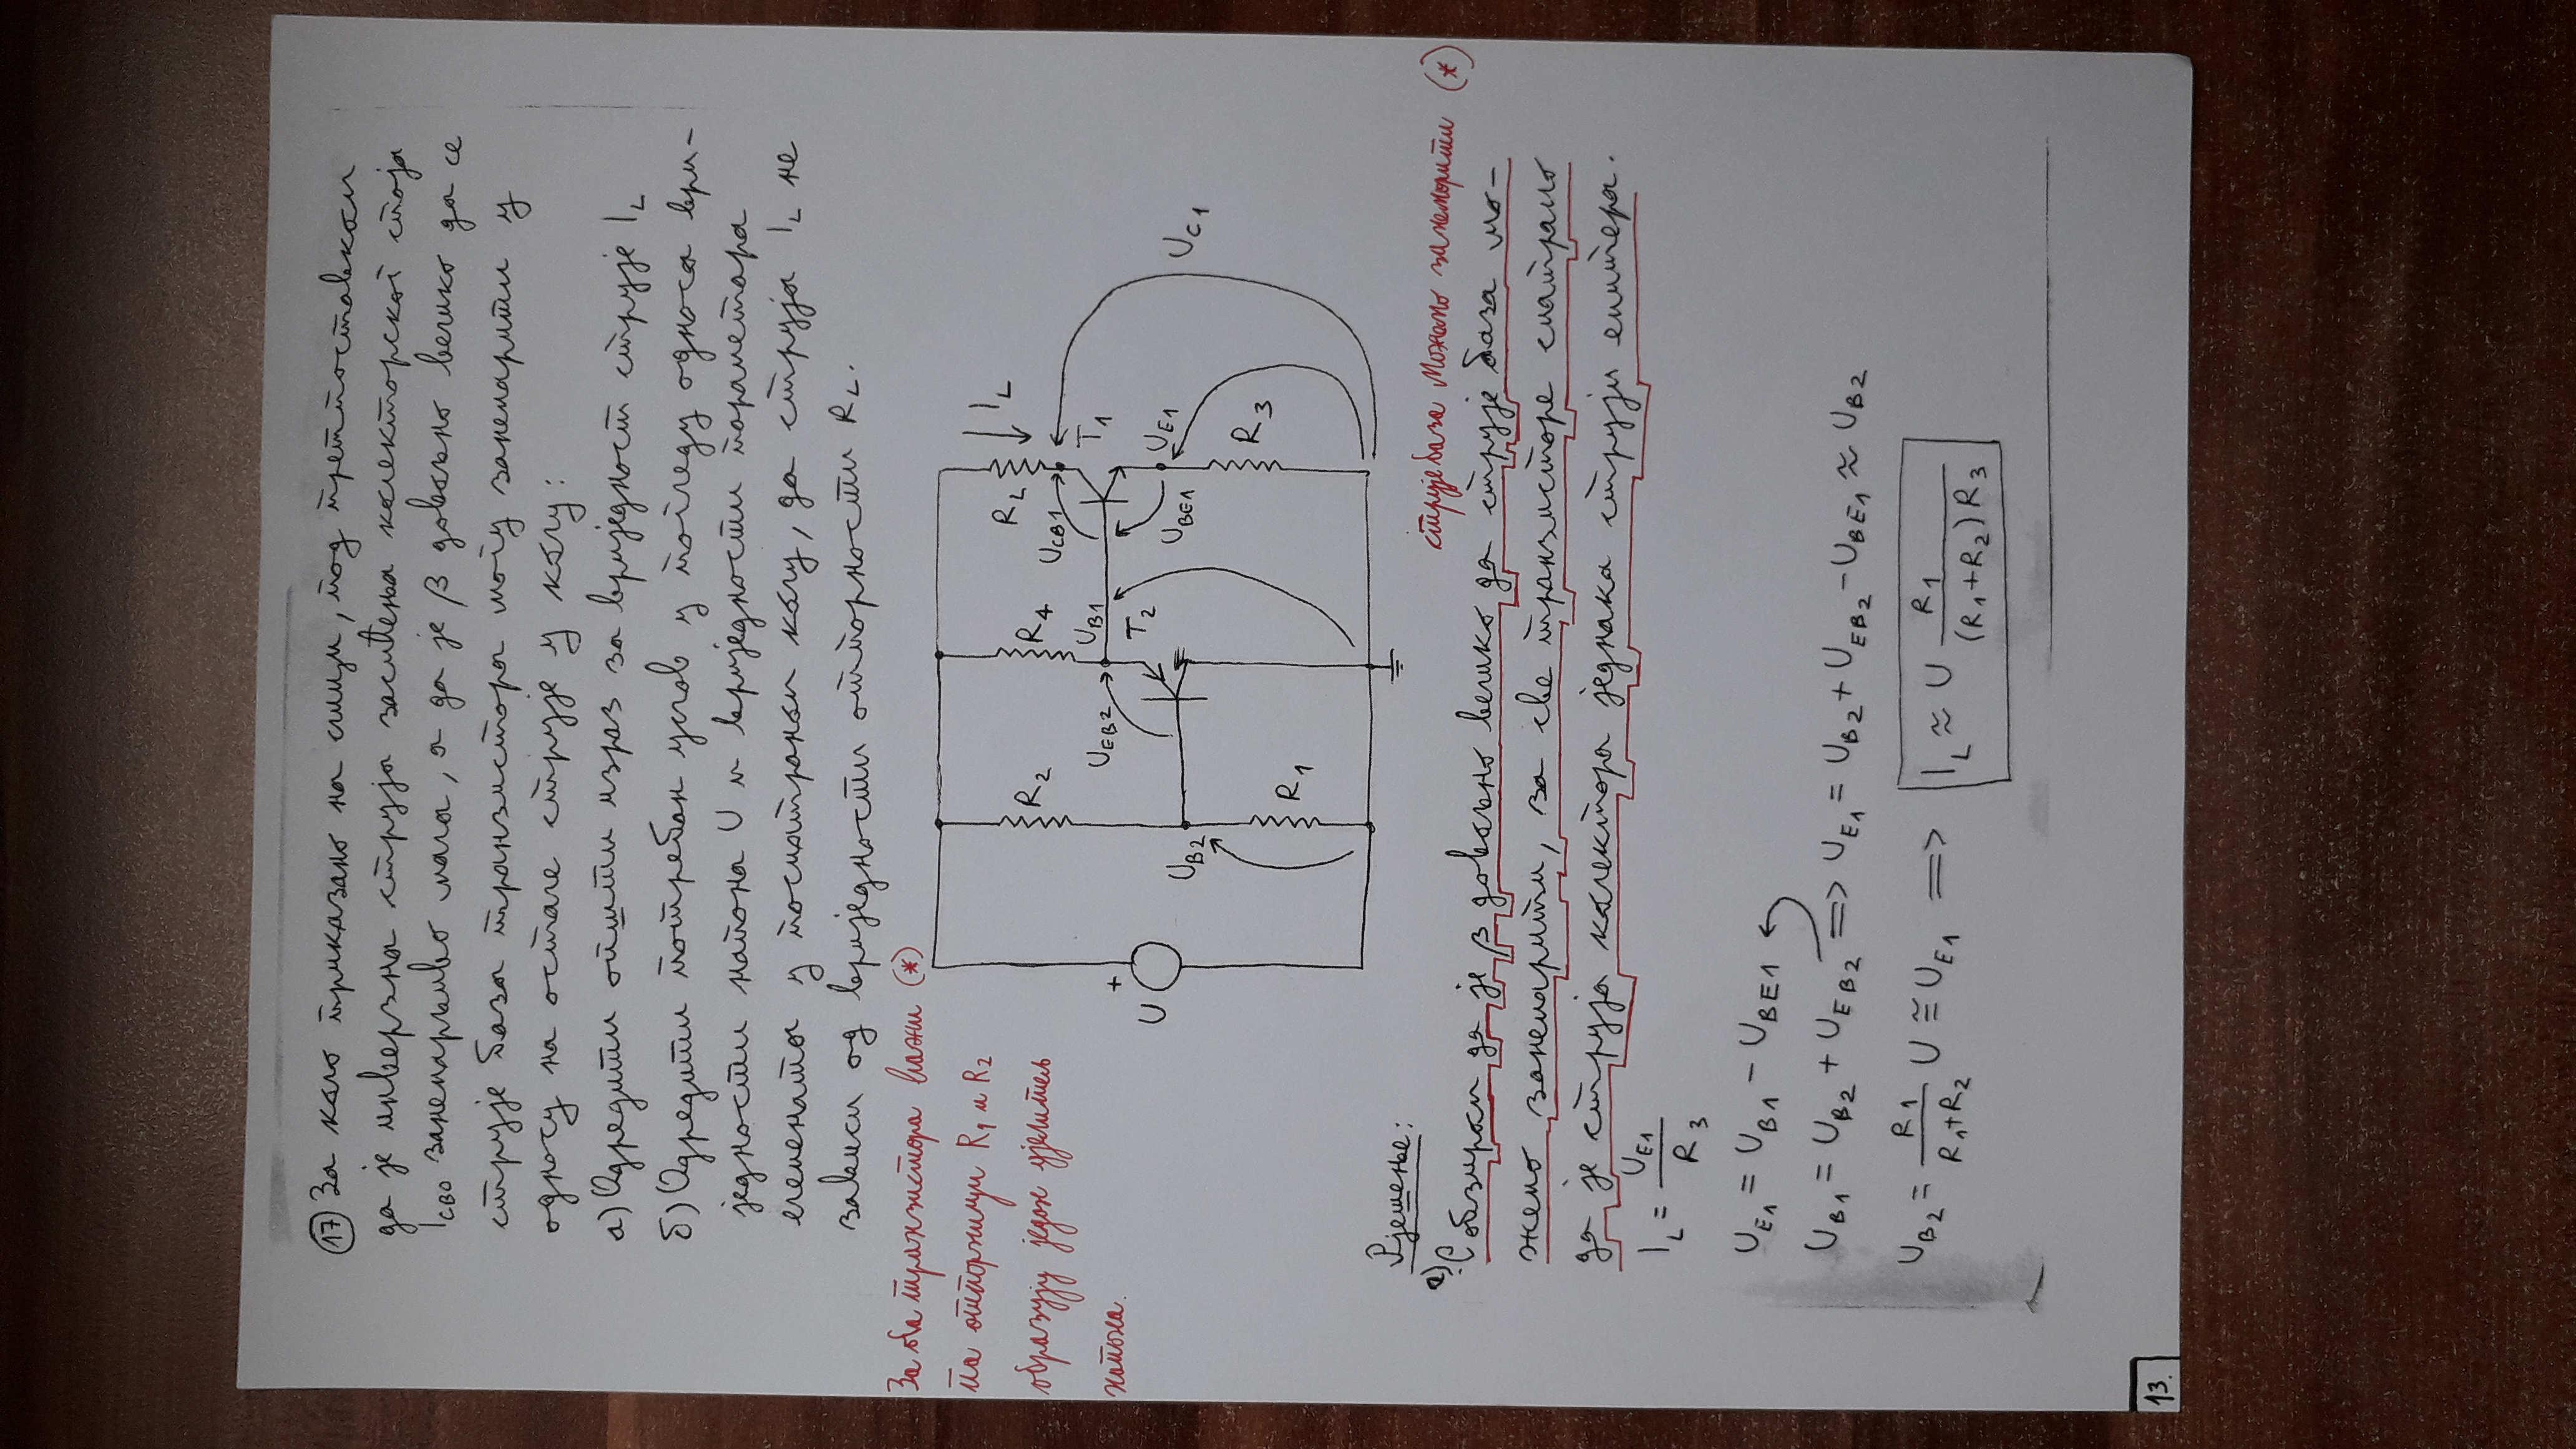 17 За коло приказано на слици, под претпоставком
да је инверзна струја засићења колекторског споја
I_CBO занемарљиво мала, а да је β довољно велико да се
струје база транзистора могу занемарити у
односу на остале струје у колу:
а) Одредити општи израз за вриједност струје I_L
б) Одредити потребан услов у погледу односа ври-
једности напона U и вриједности параметара
елемената у посматраном колу, да струја I_L не
зависи од вриједности отпорности R_L.
За оба транзистора важи (*)
па отпорници R_1 и R_2
образују један дјелитељ
напона.
R_2
R_4
R_L
I_L
U_CB1
U_EB2
U_B1
T_1
T_2
+
U
U_B2
U_BE1
U_E1
U_C1
R_1
R_3
Рјешење:
струје база можемо занемарити (*)
а) С обзиром да је β довољно велико да струје база мо-
жемо занемарити, за све транзисторе сматрамо
да је струја колектора једнака струји емитера.
I_L = U_E1 / R_3
U_E1 = U_B1 - U_BE1
U_B1 = U_B2 + U_EB2 => U_E1 = U_B2 + U_EB2 - U_BE1 ≈ U_B2
U_B2 = R_1 / (R_1+R_2) U ≅ U_E1 => I_L ≈ U R_1 / ((R_1+R_2) R_3)
13.